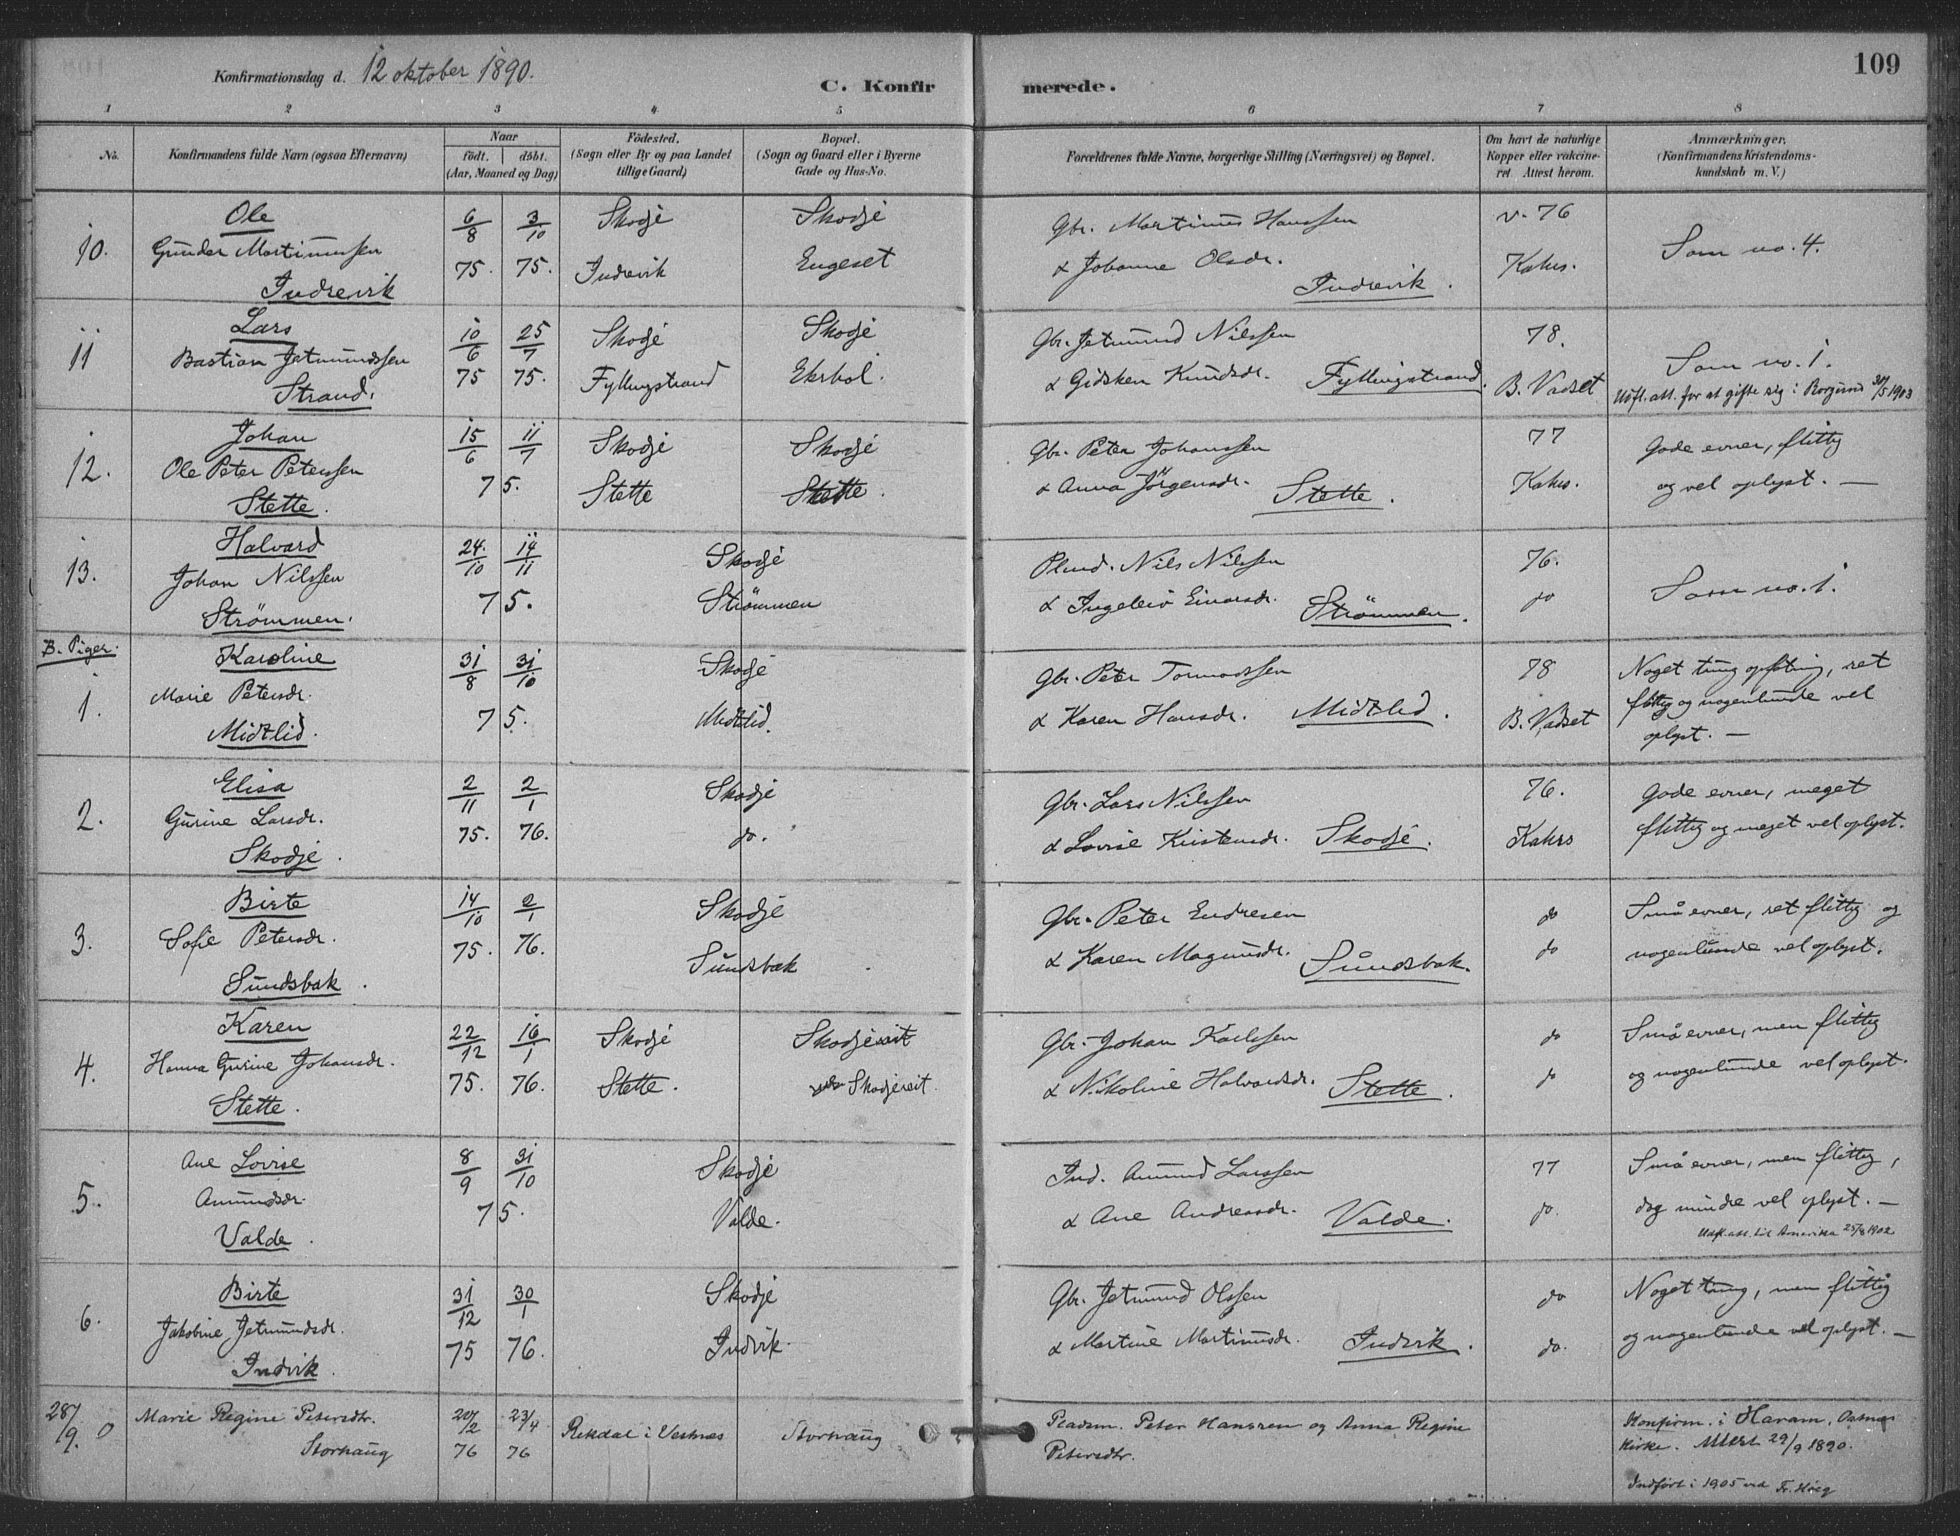 109
Konfirmationsdag d. 12 oktober 1890.
C. Konfirmerede.
1 2 3 4 5 6 7 8
No.
Konfirmandens fulde Navn (ogsaa Efternavn)
Naar
födt. döbt.
(Aar, Maaned og Dag)
Födested.
(Sogn eller By og paa Landet
tillige Gaard)
Bopæl.
(Sogn og Gaard eller i Byerne
Gade og Hus-No.
Forældrenes fulde Navne, borgerlige Stilling (Næringsvei) og Bopæl.
Om havt de naturlige
Kopper eller vakcine-
ret. Attest herom.
Anmærkninger.
(Konfirmandens Kristendoms-
kundskab m. V.)
Ole 6/8 3/10 Skodje Skodje Gbr. Martinus Hanssen v. 76
10. Gunder Martinussen 75. 75. Indrevik Engeset & Johanne Olsdr. Kahrs. Som no. 4.
Indrevik Indrevik.
Lars 10/6 25/7 Skodje Skodje Gbr. Jetmund Nilssen 78.
11 Bastian Jetmundssen 75 75. Fyllingstrand Ekrhol. & Gidsken Knudsdr. Fyllingstrand. B. Vadset Som no. 1.
Strand. Udfl. att. for at gifte sig i Borgund 30/5 1903
Johan 15/6 11/7 Skodje Skodje Gbr. Peter Johanssen 77 Gode evner, flittig
12. Ole Peter Peterssen 75. Stette Stette. & Anna Jörgensdr. Stette. Kahrs. og vel oplyst. —
Stette.
Halvard 24./10 14/11 Skodje Nils Nilssen 76.
13. Johan Nilssen 75. Strömmen & Ingeleiv Einarsdr. Strömmen. do Som no. 1.
Strömmen.
B. Piger.
Karoline 31/8 31/10 Skodje Gbr. Peter Tormodssen 78 Noget tung opfatning, ret
1. Marie Petersdr. 75. Midtlid. & Karen Hansdr. Midtlid. B. Vadset flittig og nogenlunde vel
Midtlid. oplyst. —
Elisa 2/11 2/1 Skodje Gbr. Lars Nilssen 76. Gode evner, meget
2. Gurine Larsdr. 75. 76. do. & Lovise Kristensdr. Skodje. Kahrs flittig og meget vel oplyst.
Skodje.
Birte 14/10 2/1 Skodje Gbr. Peter Endresen do Små evner, ret flittig og
3. Sofie Petersdr. 75. 76. Sundsbak & Karen Magnusdr. Sundsbak. do nogenlunde vel oplyst.
Sundsbak.
Karen 22/12 16/1 Skodje Skodjereit Gbr. Johan Karlssen do Små evner, men flittig
4. Hanna Gurine Johansdr. 75. 76. Stette. Skodjereit. & Nikoline Halvardsdr. Stette. do og nogenlunde vel oplyst.
Stette.
Ane Lovise 8/9 31/10 Skodje Ind. Amund Larssen 77 Små evner, men flittig,
5. Amundsdr. 75. Valde. & Ane Andreasdr. Valde. do. dog mindre vel oplyst. —
Valde. Udfl. att. til Amerika 25/8 1902
Birte 31/12 30/1 Skodje Gbr. Jetmund Olssen do Noget tung, men flittig
6. Jakobine Jetmundsdr. 75 76. Indvik. & Martine Martinusdr. Indvik. do. og nogenlunde vel oplyst. —
Indvik.
28/9. 0 Marie Regine Petersdtr. 20/2 23/4 Rekdal i Vestnes Storhaug Pladsm. Peter Hanssen og Anna Regine Konfirm. i Haram,
Storhaug 76 76 Petersdtr. Kirke. Attest 29/9 1890.
Indfört i 1905 ved Fr. Höeg